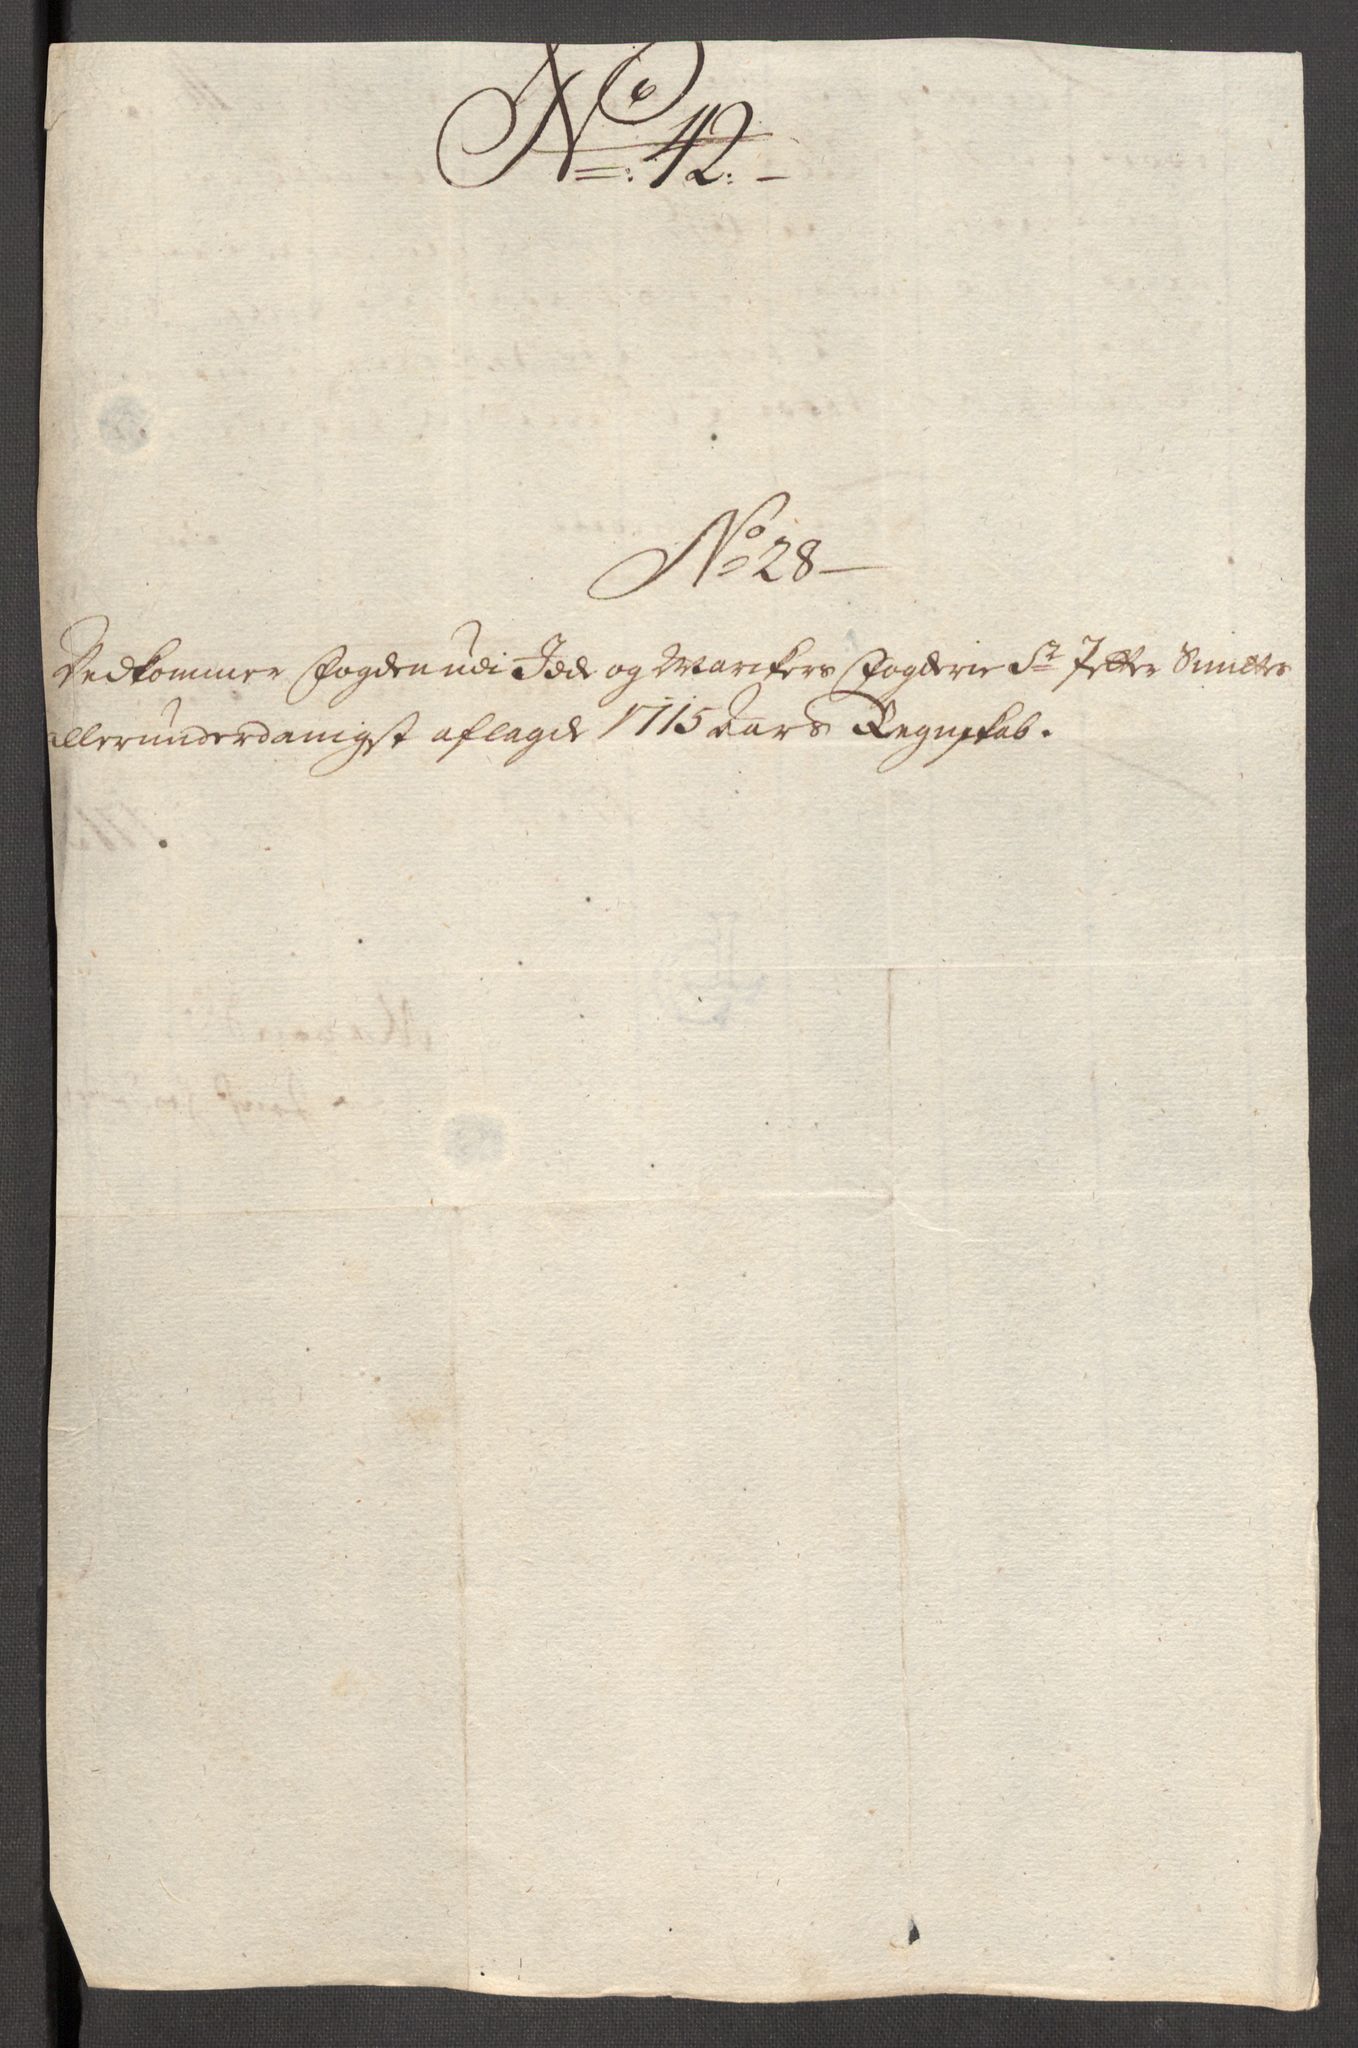 No 42.
No 28
Vedkommer fogden udi Idde og Marckers fogderie Sr Petter Smittes
allerunderdanigst aflagde 1715 Aars Regnskab.